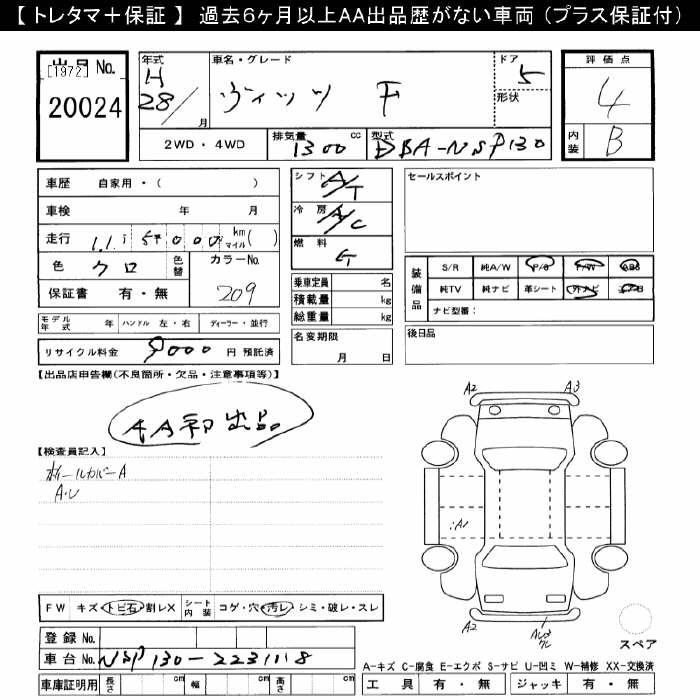 【 トレタマ＋保証 】 過去6ヶ月以上AA出品歴がない車両（プラス保証付）
出品 No.
[1972]
20024
年式
H
28/
月
車名・グレード
ヴィッツ F
ドア
5
形状
評価点
4
内装
B
2WD・4WD
排気量
1300
cc
型式
DBA-NSP130
車歴 自家用・( )
車検 年 月
走行
000
km
マイル
( )
色
クロ
色替
カラーNo.
209
保証書 有・無
シフト
A/T
冷房
A/C
燃料
G
セールスポイント
装備品
S/R 純A/W P/S P/W ABS
純TV 純ナビ 革シート 外ナビ エアB
ナビ型番：
乗車定員 名
積載量 kg
総重量 kg
名変期限
月 日
後日品
モデル年式 年 ハンドル 左・右 ディーラー・並行
リサイクル料金 9000 円 預託済
【出品店申告欄(不良箇所・欠品・注意事項等)】
AA初出品
【検査員記入】
ホイールカバーA
A・U
A2
A3
A1
A2
FW キズ・トビ石・割レX シート内装 コゲ・穴・汚レ・シミ・破レ・スレ
登録 No.
車台 No. NSP130-2231118
車庫証明用 長さ cm 幅 cm 高さ cm
スペア
A-キズ C-腐食 E-エクボ S-サビ U-凹ミ W-補修 XX-交換済
工具 有・無 ジャッキ 有・無